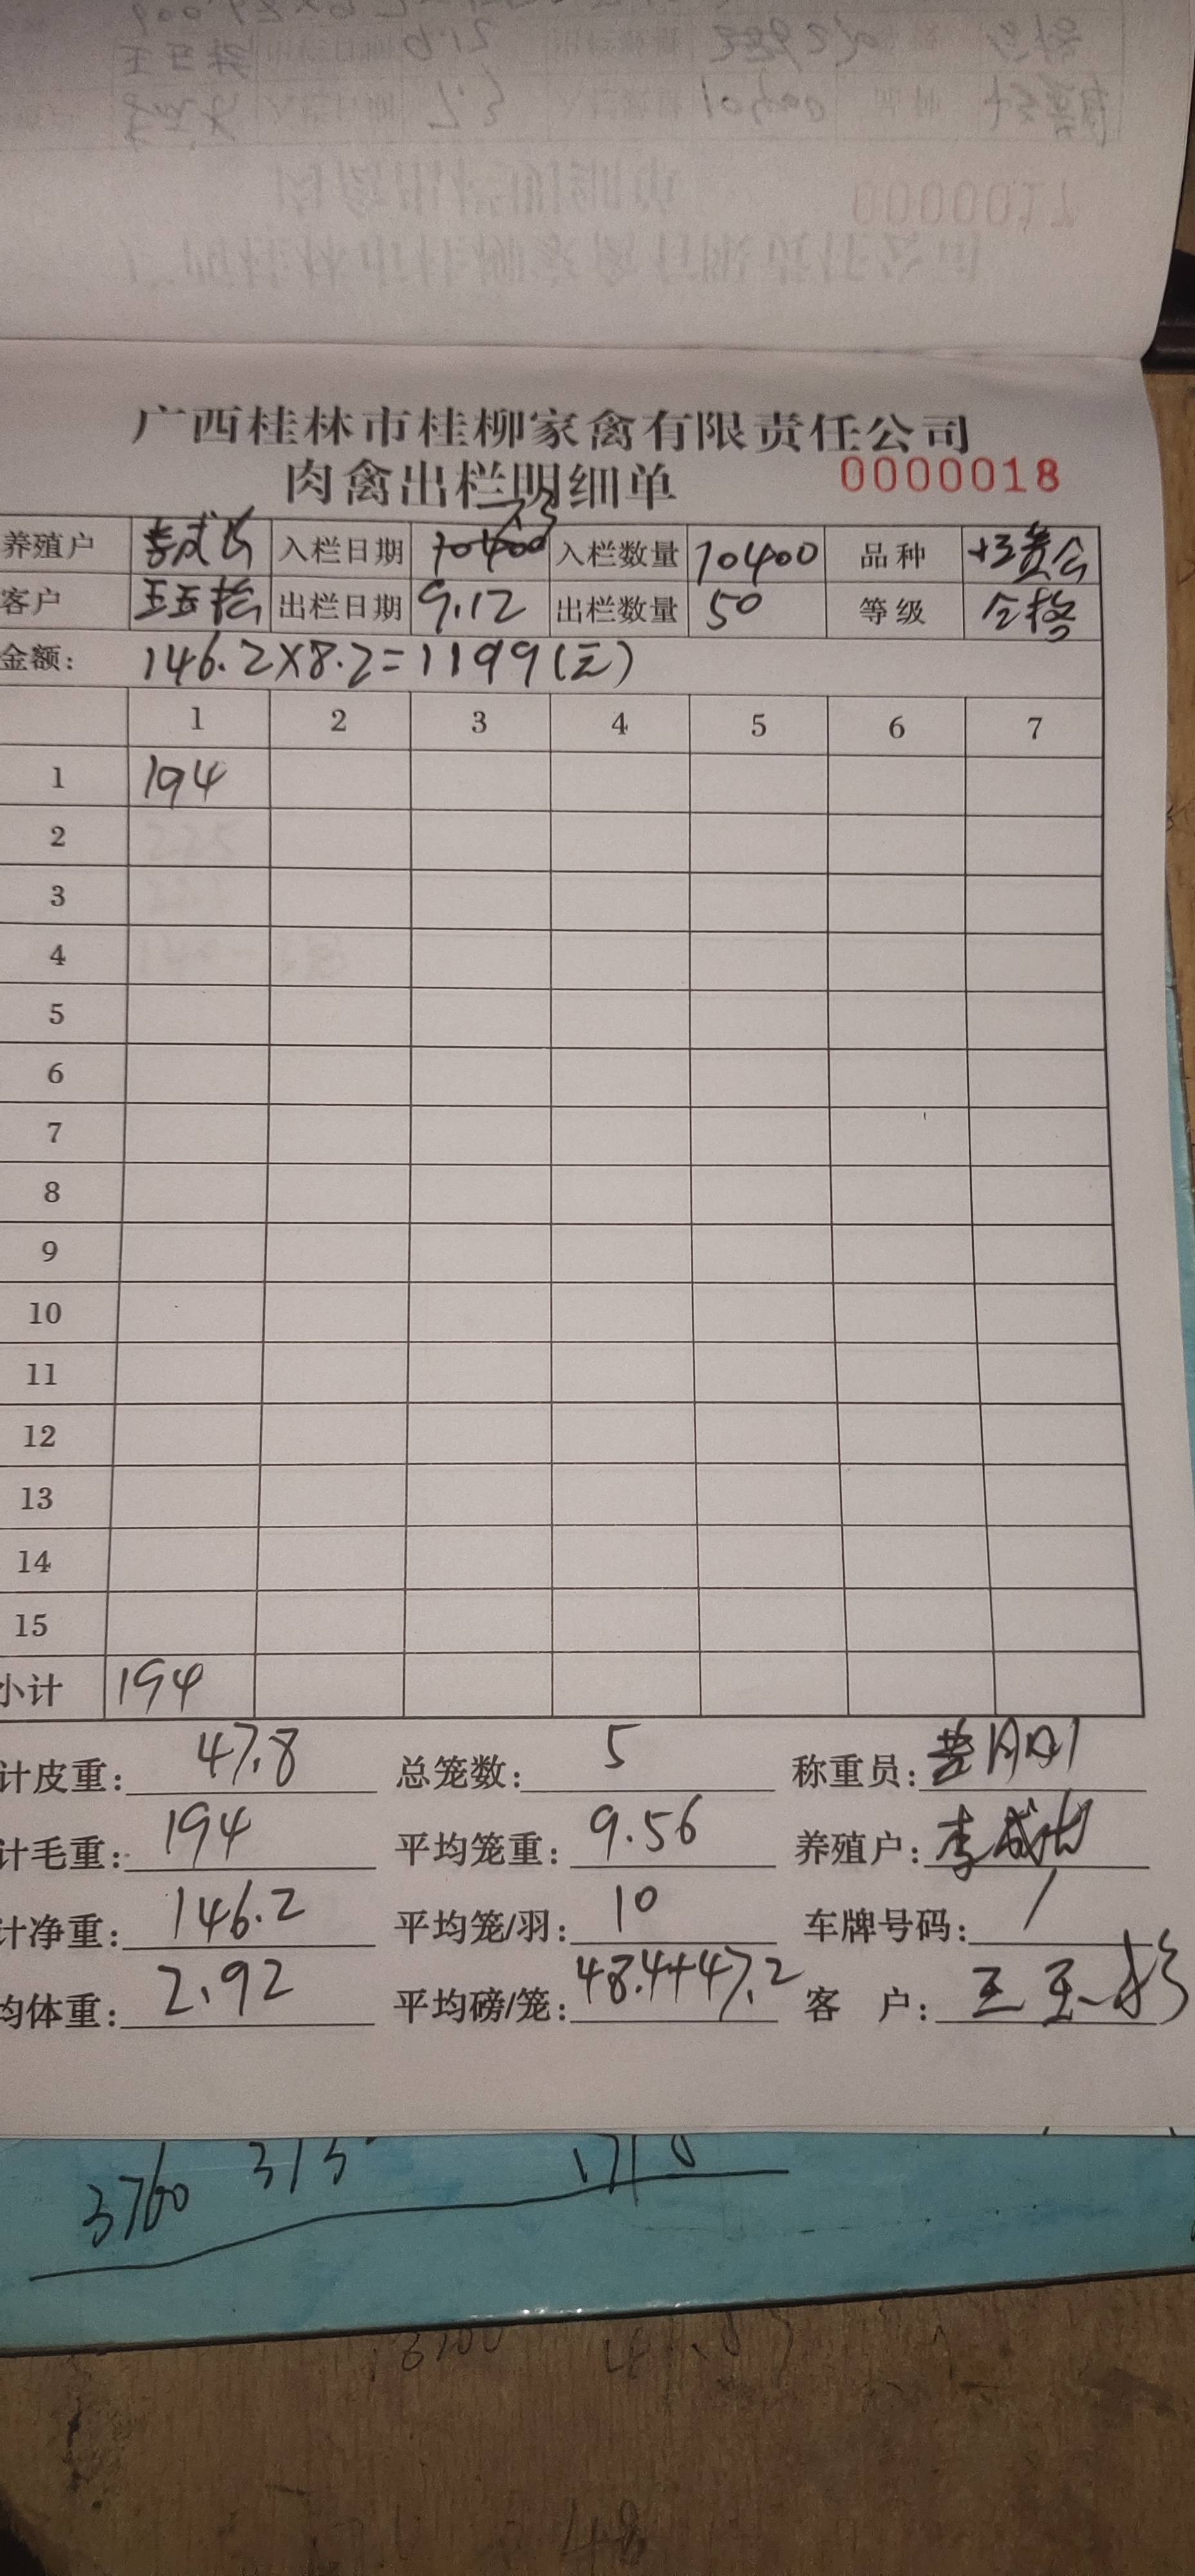 广西桂林市桂柳家禽有限责任公司
肉禽出栏明细单 0000018
养殖户 李成 入栏日期 7.3 入栏数量 10400 品种
客户 王玉 出栏日期 9.12 出栏数量 50 等级 合格
金额: 146.2×8.2=1199(元)
1 2 3 4 5 6 7
1 194
2
3
4
5
6
7
8
9
10
11
12
13
14
15
小计 194
计皮重: 47.8 总笼数: 5 称重员:
计毛重: 194 平均笼重: 9.56 养殖户: 李成
计净重: 146.2 平均笼/羽: 10 车牌号码: /
均体重: 2.92 平均磅/笼: 48.4+47.2 客 户: 王玉
3760 313 1710
48